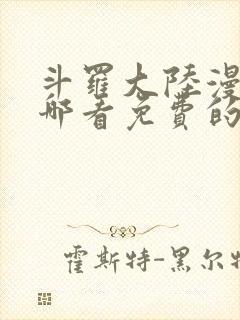 斗罗大陆漫
哪看免费的
霍斯特-黑尔特